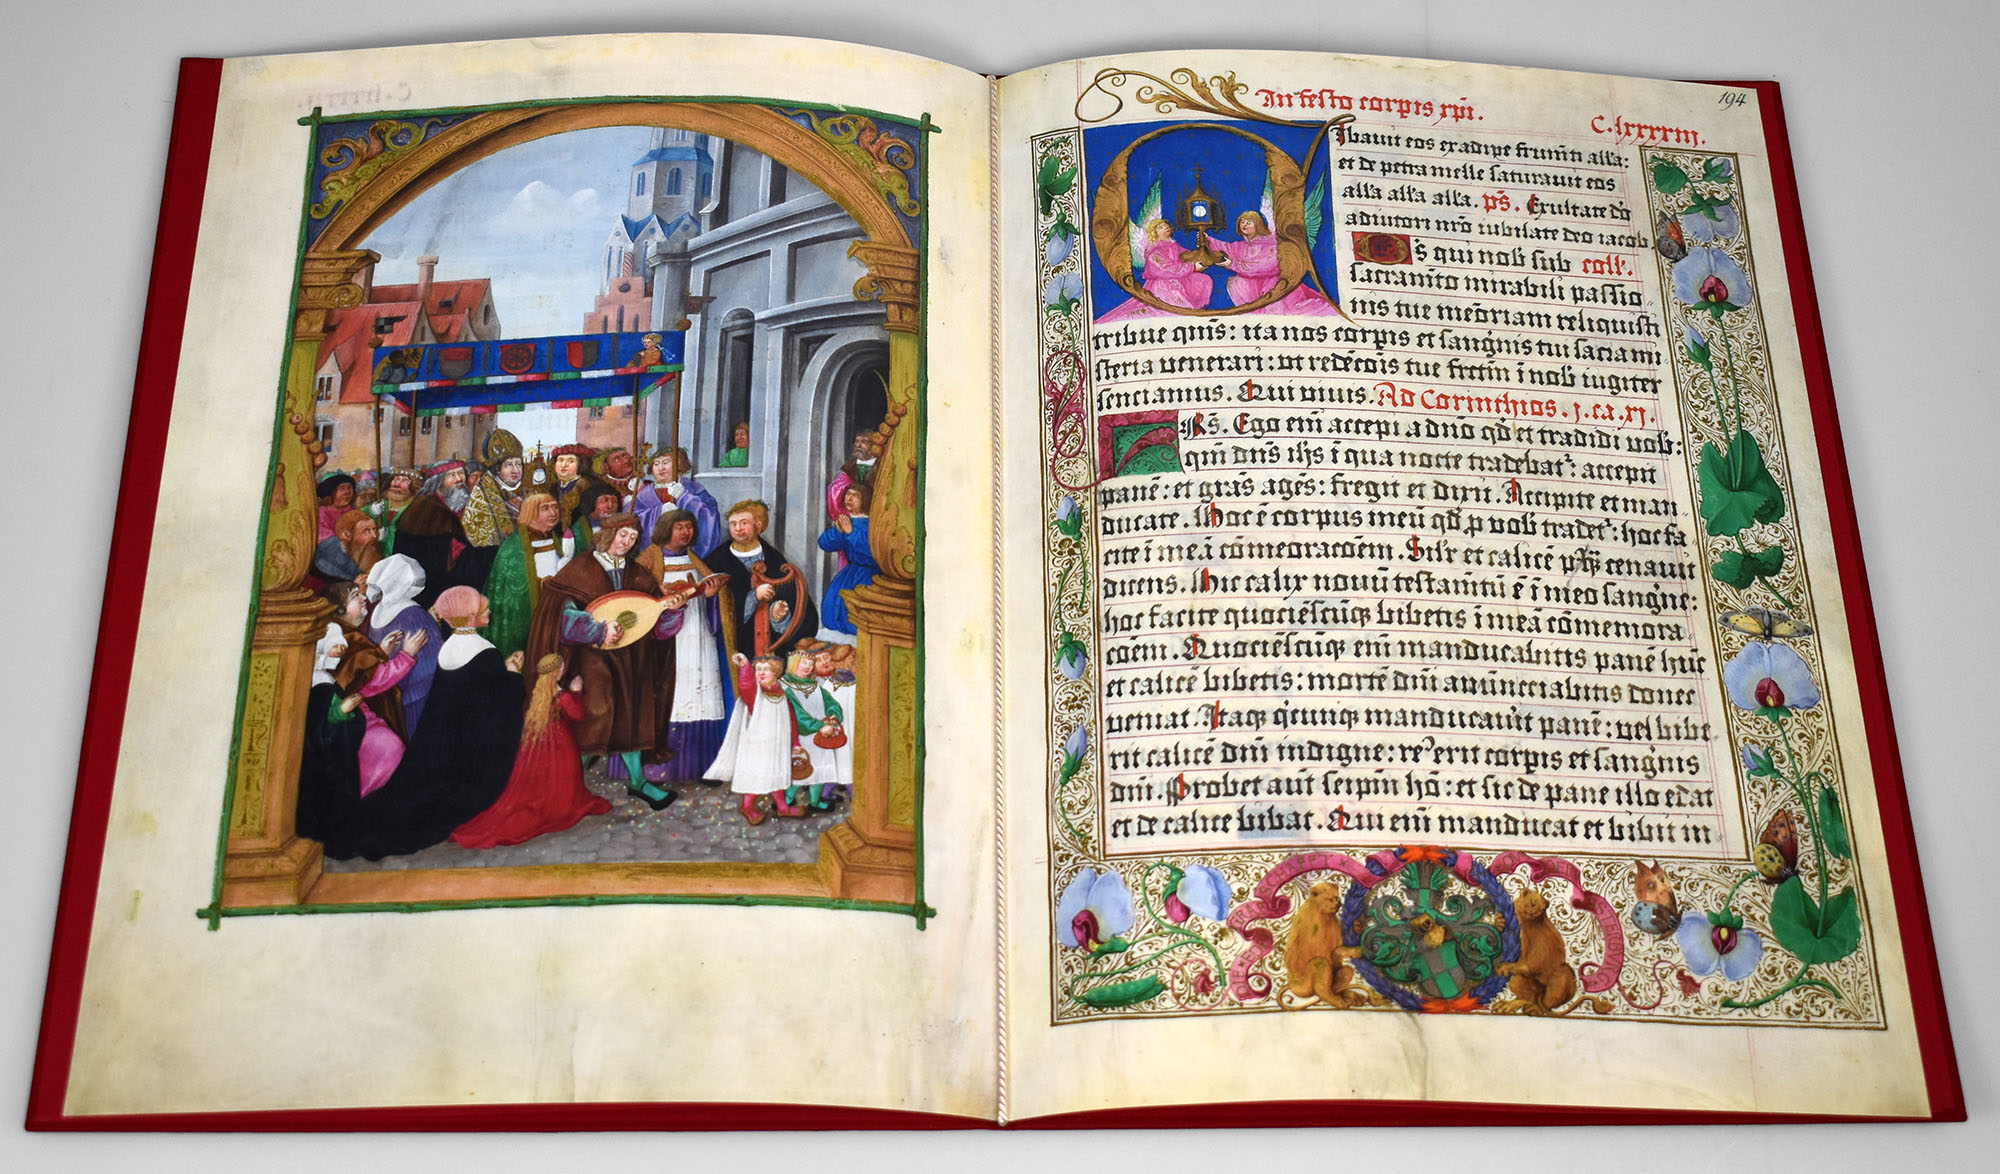 In festo corpis xpi.
194
C. lxxxxiij.
Cibavit eos ex adipe frumti alla:
et de petra melle saturavit eos
alla alla alla. ps. Exultate do
adiutori nro iubilate deo iacob.
Ds qui nob sub coll.
sacramto mirabili passio
nis tue memoriam reliquisti
tribue quis: ita nos corpis et sanguis tui sacra mi
steria venerari: ut redeois tue fructm i nob iugiter
senciamus. Qui vivis. Ad Corinthios. j. ca. xj.
Frs. Ego em accepi a dno qd et tradidi vob:
qm dns ihs i qua nocte tradebat: accepit
pane: et gras ages: fregit et dixit. Accipite et man
ducate. Hoc e corpus meu qd p vob tradet: hoc fa
cite i mea comeoracoem. Silr et calice pq cenavit
dicens. Hic calix novu testamtu e i meo sangne:
hoc facite quociescuq bibetis i mea comemora
coem. Quociescuq em manducabitis pane huc
et calice bibetis: morte dni anuncciabitis donec
veniat. Itaq qcunq manducavit pane: vel bibe
rit calice dni indigne: re erit corpis et sanguis
dni. Probet aut seipm ho: et sic de pane illo edat
et de calice bibat. Qui em manducat et bibit in